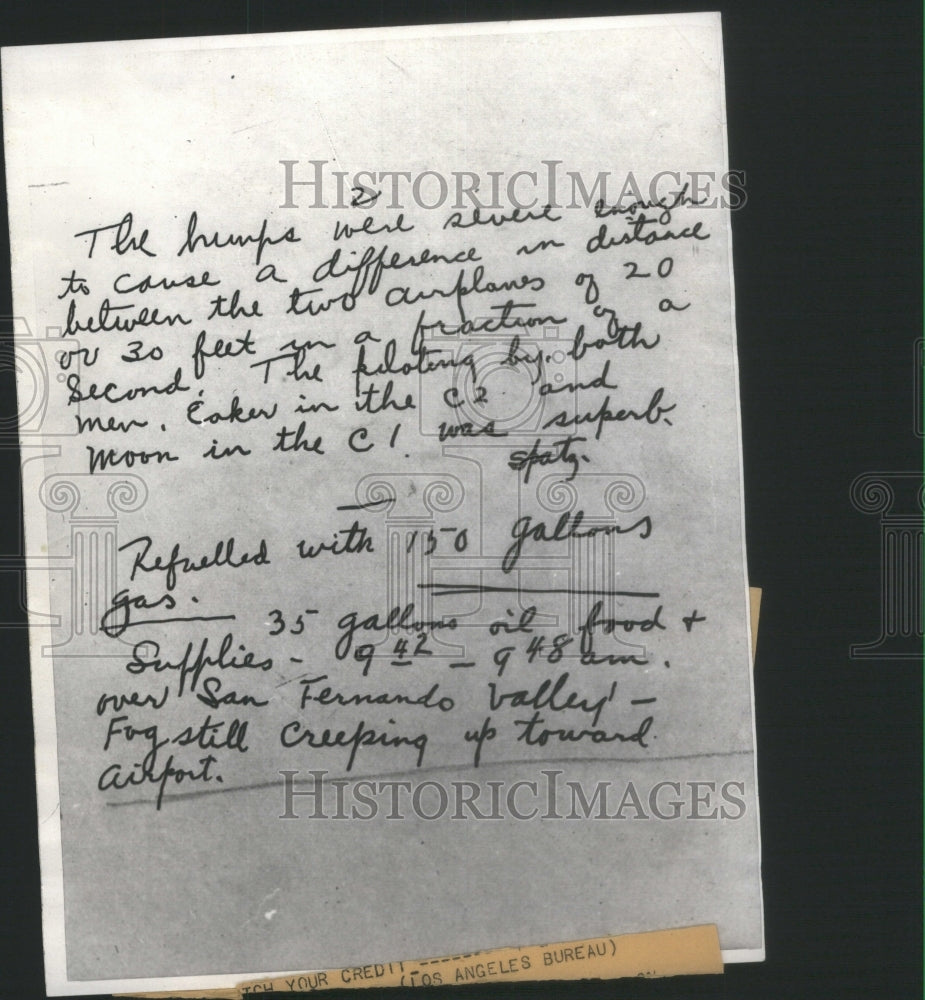 HISTORICIMAGES
2
The humps were severe enough
to cause a difference in distance
between the two airplanes of 20
or 30 feet in a fraction of a
Second. The piloting by. both
men. Eaker in the C2 and
Moon in the C1. was superb.
Spatz.
Refuelled with 150 gallons
gas.
35 gallons oil food +
Supplies - 9 42 - 9 48 am.
over San Fernando Valley -
Fog still Creeping up toward
airport.
HISTORICIMAGES
TCH YOUR CREDIT
(LOS ANGELES BUREAU)